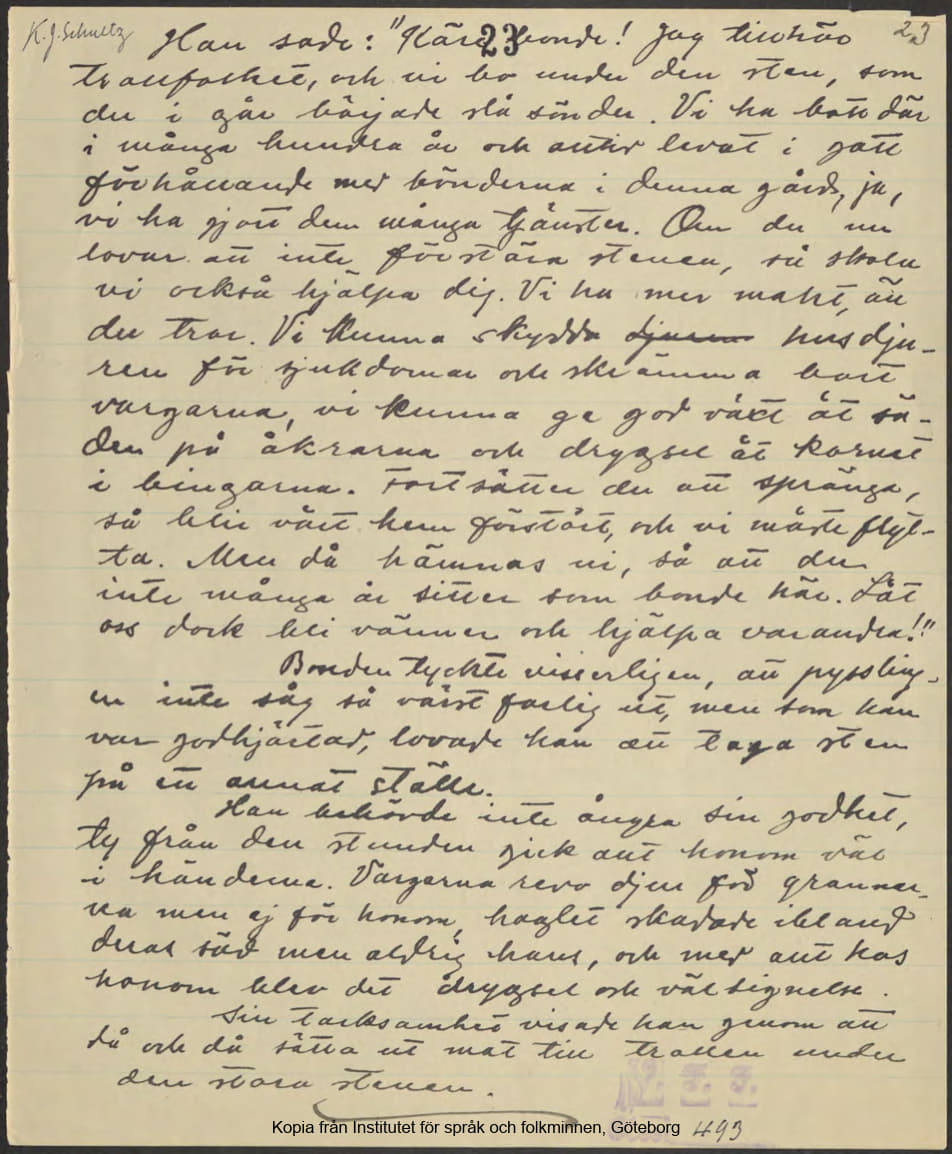 K. J. Schultz
23
23
Han sade: "Käre bonde! Jag tillhör
trollfolket, och vi bo under den sten, som
du i går började slå sönder. Vi ha bott där
i många hundra år och alltid levat i gott
förhållande med bönderna i denna gård, ja,
vi ha gjort dem många tjänster. Om du nu
lovar att inte förstöra stenen, så skola
vi också hjälpa dig. Vi ha mer makt, än
du tror. Vi kunna skydda djuren husdju-
ren för sjukdomar och skrämma bort
vargarna, vi kunna ge god växt åt sä-
den på åkrarna och drygsel åt kornet
i bingarna. Fortsätter du att spränga,
så blir vårt hem förstört, och vi måste flyt-
ta. Men då hämnas vi, så att du
inte många år sitter som bonde här. Låt
oss dock bli vänner och hjälpa varandra!"
Bonden tyckte visserligen, att pyssling-
en inte såg så värst farlig ut, men som han
var godhjärtad, lovade han att taga sten
på ett annat ställe.
Han behövde inte ångra sin godhet,
ty från den stunden gick allt honom väl
i händerna. Vargarna revo djur för grannar-
na men ej för honom, haglet skadade ibland
deras säd men aldrig hans, och med allt hos
honom blev det drygsel och välsignelse.
Sin tacksamhet visade han genom att
då och då sätta ut mat till trollen under
den stora stenen.
V. F. F.
493
Kopia från Institutet för språk och folkminnen, Göteborg